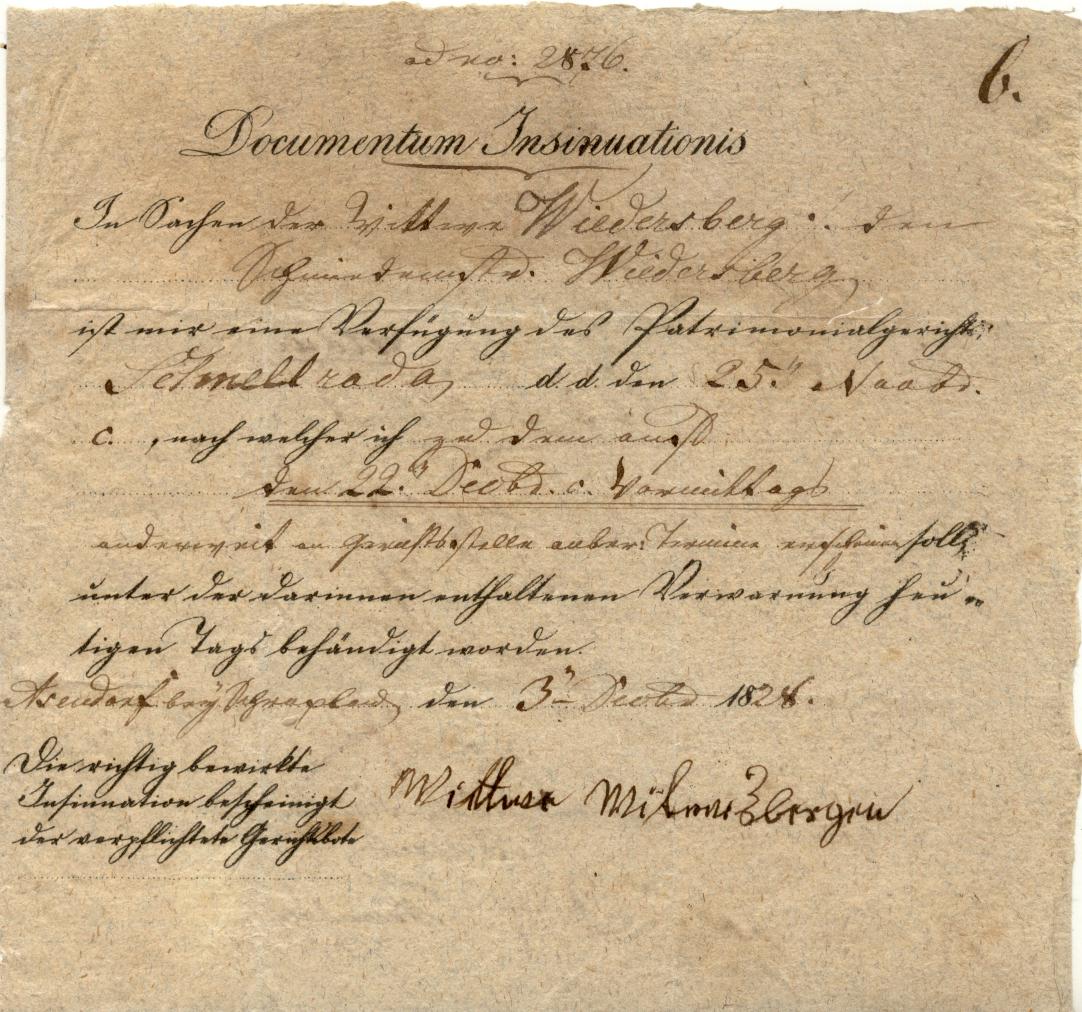 ad no: 2876.
6.
Documentum Insinuationis
In Sachen der Wittwe Wiedersberg ./. den
Schmiedemstr. Wiedersberg
ist mir eine Verfügung des Patrimonialgerichts
Schnellroda d. d. den 25." Novbr.
c. , nach welcher ich zu dem auf
den 22." Decbr. c. Vormittags
anderweit an Gerichtsstelle anber. Termine erscheinen soll,
unter der darinnen enthaltenen Verwarnung heu-
tigen Tags behändigt worden.
Asendorf bey Schraplau, den 3" Decbr 1828.
Die richtig bewirkte
Insinuation bescheinigt
der verpflichtete Gerichtsbote
Wittwe